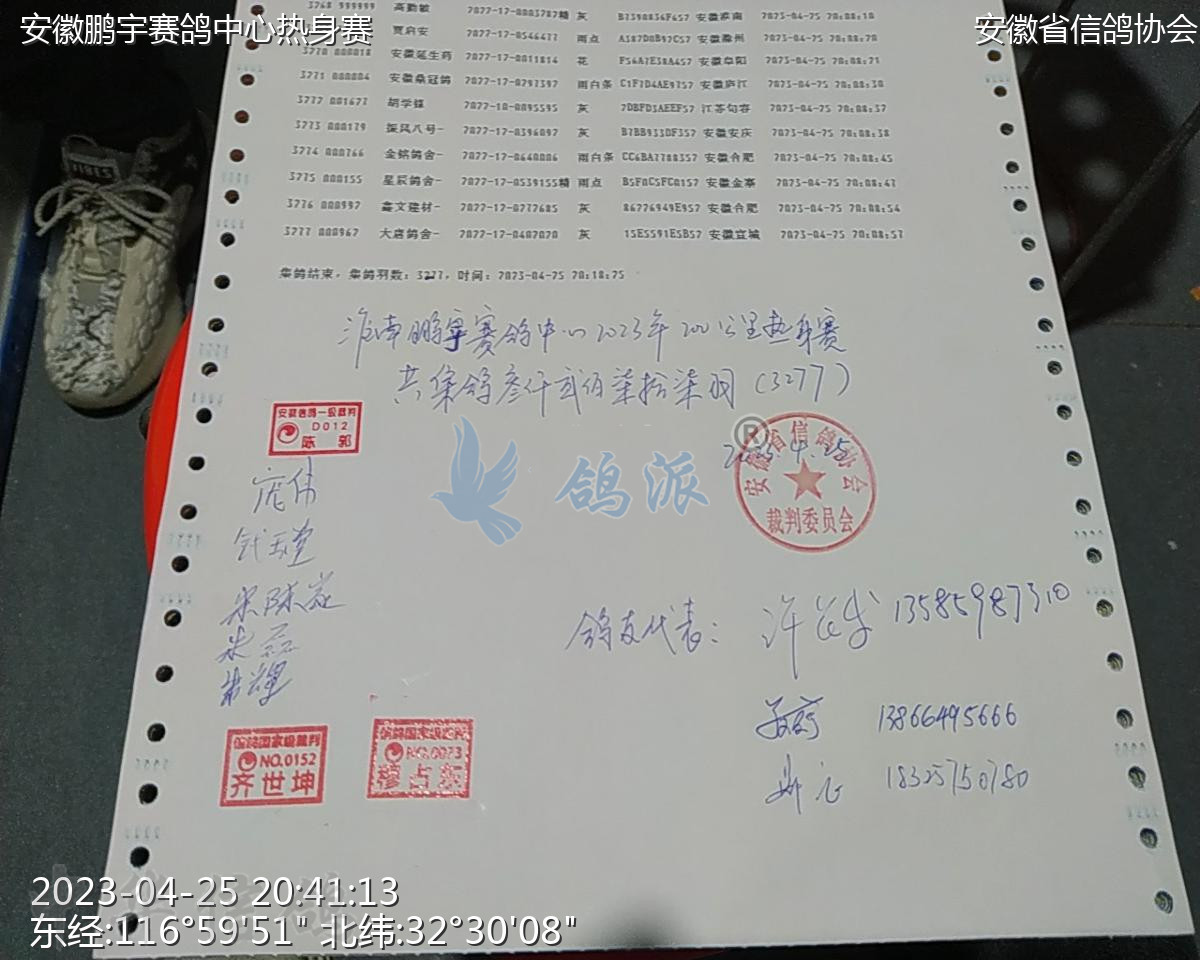 安徽鹏宇赛鸽中心热身赛
安徽省信鸽协会
3768 999999 高勤敏 2022-12-0003282精 灰 安徽淮南 2023-04-25 20:08:10
贾启安 2022-12-0546422 雨点 A387D0B92C52 安徽滁州 2023-04-25 20:08:20
3770 000018 安徽延生药 2022-12-0011814 花 F56A2E38A452 安徽阜阳 2023-04-25 20:08:21
3771 000004 安徽鼎冠鸽 2022-12-0292392 雨白条 C1F2D4AE9252 安徽庐江 2023-04-25 20:08:30
3272 001622 胡学锋 2022-10-0095595 灰 2DBFD3AEEF52 江苏句容 2023-04-25 20:08:32
3273 000129 振凤八号- 2022-12-0396092 灰 B2BB933DF352 安徽安庆 2023-04-25 20:08:38
3274 000266 金铭鸽舍- 2022-12-0640006 雨白条 CC6BA2288352 安徽合肥 2023-04-25 20:08:45
3275 000155 星辰鸽舍- 2022-12-0539155精 雨点 B5F0C5FC0152 安徽金寨 2023-04-25 20:08:47
3276 000992 鑫文建材- 2022-12-0222685 灰 86226949E952 安徽合肥 2023-04-25 20:08:54
3277 000962 大唐鸽舍- 2022-12-0402020 灰 15E5591E5B52 安徽宣城 2023-04-25 20:08:57
集鸽结束,集鸽羽数:3277,时间:2023-04-25 20:18:25
淮南鹏宇赛鸽中心2023年200公里热身赛
共集鸽叁仟贰佰柒拾柒羽(3277)
安徽信鸽一级裁判
D012
陈 郭
®
2023.4.25
安徽省信鸽协会
裁判委员会
鸽派
庞伟
朱磊
鸽友代表: 13585987310
13866495666
18325750780
信鸽国家级裁判
NO.0152
齐世坤
信鸽国家级裁判
NO.0023
穆占东
2023-04-25 20:41:13
东经:116°59'51" 北纬:32°30'08"